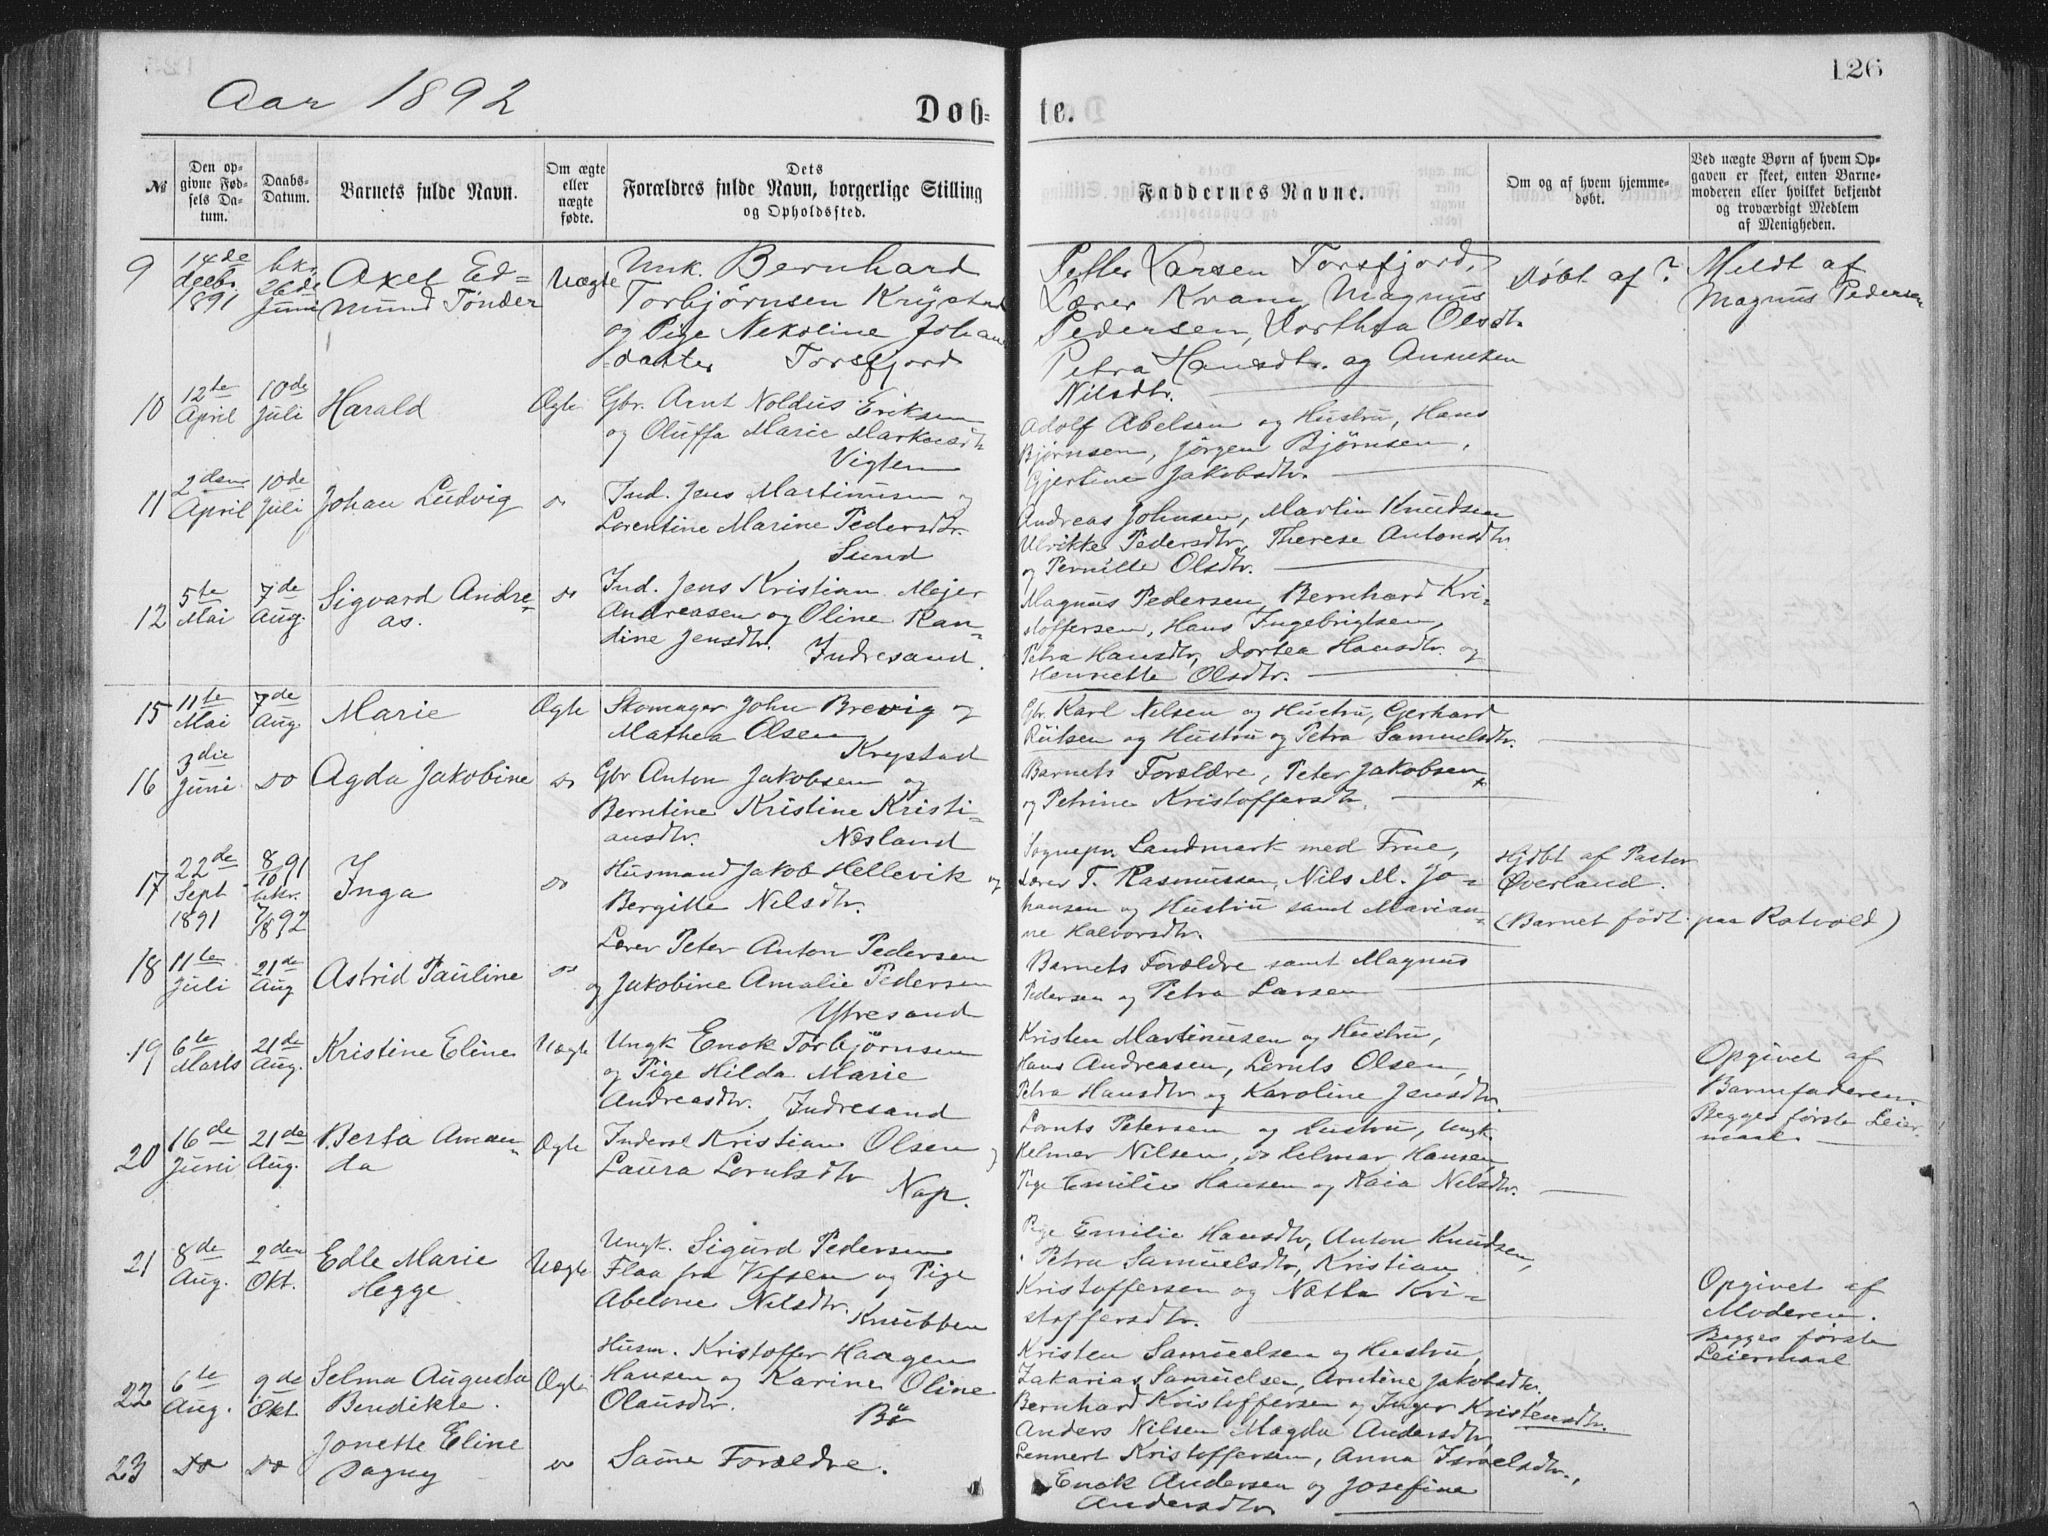 126
Aar 1892
Døb-
te.
№
Den op-
givne Fød-
sels Da-
tum.
Daabs-
Datum.
Barnets fulde Navn.
Om ægte
eller
uægte
fødte.
Dets
Forældres fulde Navn, borgerlige Stilling
og Opholdssted.
Faddernes Navne.
Om og af hvem hjemme-
døbt.
Ved uægte Børn af hvem Op-
gaven er skeet, enten Barne-
moderen eller hvilket bekjendt
og troværdigt Medlem
af Menigheden.
9
14de
decbr.
1891
bkr.
26de
Juni
Axel Ed-
mund Tönder
Uægte
Unk. Bernhard
Torbjørnsen Krystad
og Pige Nekoline Johan
=datter Torsfjord
Petter Larsen Torsfjord,
Lærer Kvam, Magnus
Pedersen, Dorthea Olsdtr.
Petra Hansdtr. og Anneken
Nilsdtr.
Døbt af ?
Meldt af
Magnus Pedersen
10
12te
April
10de
Juli
Harald
Ægte
Gbr. Arnt Noldus Eriksen
og Oluffa Marie Markusdtr
Vigten
Adolf Abelsen og Hustru, Hans
Bjørnsen, Jörgen Bjørnsen,
Gjertine Jakobsdtr.
11
2den
April
10de
Juli
Johan Ludvig
do
Ind. Jens Martinusen og
Lorentine Marine Pedersdtr.
Sund
Andreas Johnsen, Martin Knudsen
Ulrikke Pedersdtr, Therese Antonsdtr.
og Pernille Olsdtr.
12
5te
Mai
7de
Aug.
Sigvard Andre=
as.
do
Ind. Jens Kristian Mejer
Andreasen og Oline Ran=
dine Jensdtr.
Indresand.
Magnus Pedersen, Bernhard Kri=
stoffersen, Hans Ingebrigtsen,
Petra Hansdtr, Dortea Hansdtr. og
Henriette Olsdtr.
15
11te
Mai
7de
Aug.
Marie
Ægte
Skomager John Brevig og
Mathea Olsen
Krystad
Gbr. Karl Nilsen og Hustru, Gerhard
Riilsen og Hustru og Petra Samuelsdtr.
16
3die
Juni
do
Agda Jakobine
do
Gbr Anton Jakobsen og
Berntine Kristine Kristi=
ansdtr. Næsland
Barnets Forældre, Peter Jakobsen
og Petrine Kristoffersdtr.
17
22de
Sept.
1891
8/10 91
bekr.
7/8 92
Inga
do
Husmand Jakob Hellevik og
Bergitte Nilsdtr.
Sognepr. Landmark med Frue,
Lærer T. Rasmussen, Nils M. Jo=
hansen og Hustru samt Marian=
ne Halvorsdtr.
Hjdbt af Pastor
Øverland.
(Barnet född paa Rotvold)
18
11te
Juli
21de
Aug
Astrid Pauline
do
Lærer Peter Anton Pedersen
og Jakobine Amalie Pedersen
Ytresand
Barnets Forældre samt Magnus
Pedersen og Petra Larsen
19
6te
Marts
21de
Aug.
Kristine Eline
Uægte
Ungk Enok Torbjörnsen
og Pige Hilda Marie
Andreasdtr. Indresand
Kristen Martinusen og Hustru,
Hans Andreasen, Lornts Olsen,
Petra Hansdtr og Karoline Jensdtr.
Opgivet af
Barnefaderen.
Begges første Leier-
maal.
20
16de
Juni
21de
Aug.
Berta Aman=
da
Ægte
Inderst Kristian Olsen og
Laura Lorntsdtr
Nap.
Lornts Petersen og Hustru, Ungk.
Helmer Nilsen, do Hilmar Hansen,
Pige Emilie Hansen og Kaia Nilsdtr.
21
8de
Aug.
2den
Okt.
Edle Marie
Hegge
Uægte
Ungk. Sigurd Pedersen
Flaa fra Vefsen og Pige
Abelone Nilsdtr.
Knubben
Pige Emilie Hansdtr, Anton Knudsen,
Petra Samuelsdtr, Kristian
Kristoffersen og Nætta Kri=
stoffersdtr.
Opgivet af
Moderen.
Begges første
Leiermaal
22
6te
Aug.
9de
Okt
Selma Augusta
Bendikte.
Ægte
Husm. Kristoffer Haagen
Hansen og Karine Oline
Olausdtr.
Bö
Kristen Samuelsen og Hustru,
Zakarias Samuelsen, Arntine Jakobsdtr,
Bernhard Kristoffersen og Inger Kristensdtr.
23
Do
Do
Jonette Eline
Dagny
do
Same Forældre.
Anders Nilsen Magda Andersdtr,
Lennert Kristoffersen, Anna Israelsdtr.,
Enok Andersen og Josefine
Andersdtr